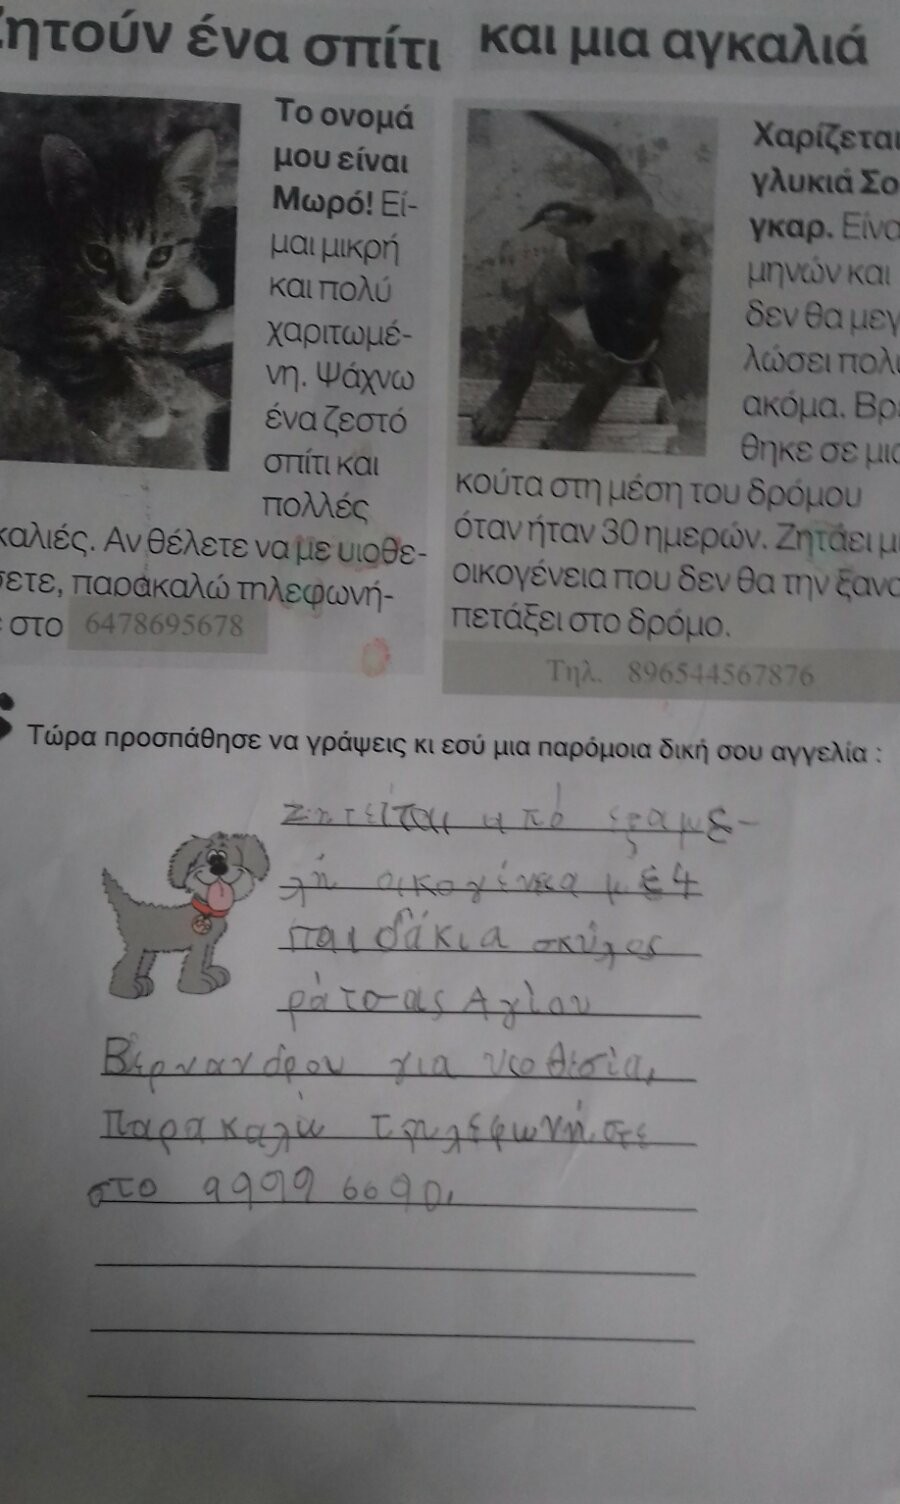 Ζητούν ένα σπίτι και μια αγκαλιά
Το ονομά
μου είναι
Μωρό! Εί-
μαι μικρή
και πολύ
χαριτωμέ-
νη. Ψάχνω
ένα ζεστό
σπίτι και
πολλές
καλιές. Αν θέλετε να με υιοθε-
σετε, παρακαλώ τηλεφωνή-
στο 6478695678
Χαρίζεται
γλυκιά Σο
γκαρ. Είνα
μηνών και
δεν θα μεγ
λώσει πολ
ακόμα. Βρ
θηκε σε μια
κούτα στη μέση του δρόμου
όταν ήταν 30 ημερών. Ζητάει μ
οικογένεια που δεν θα την ξανα
πετάξει στο δρόμο.
Τηλ. 896544567876
Τώρα προσπάθησε να γράψεις κι εσύ μια παρόμοια δική σου αγγελία :
Ζητείται από εξαμε-
λή οικογένεια με 4
παιδάκια σκύλος
ράτσας Αγίου
Βερνανδρου για υιοθεσία,
Παρακαλώ τηλεφωνήστε
στο 99996690,